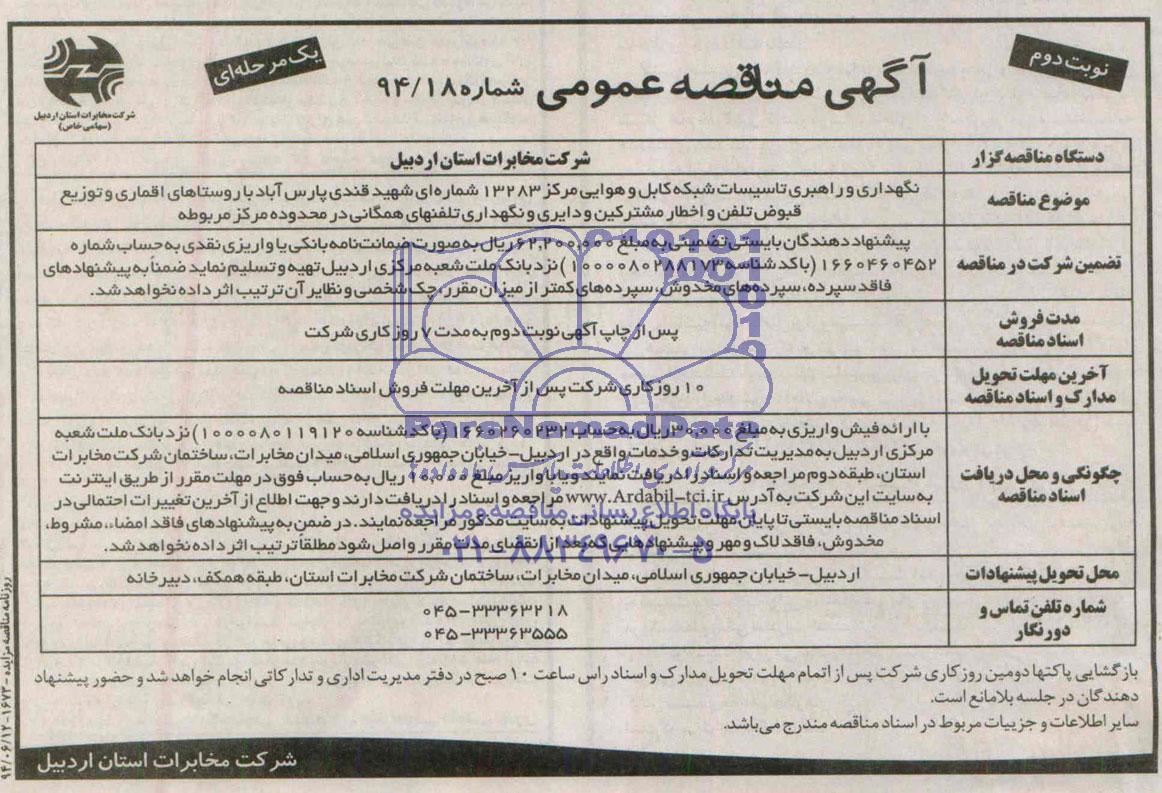 نوبت دوم
آگهی مناقصه عمومی شماره ۹۴/۱۸
یک مرحله‌ای
شرکت مخابرات استان اردبیل
(سهامی خاص)
دستگاه مناقصه گزار
شرکت مخابرات استان اردبیل
موضوع مناقصه
نگهداری و راهبری تاسیسات شبکه کابل و هوایی مرکز ۱۳۲۸۳ شماره ای شهید قندی پارس آباد با روستاهای اقماری و توزیع
قبوض تلفن و اخطار مشترکین و دایری و نگهداری تلفنهای همگانی در محدوده مرکز مربوطه
تضمین شرکت در مناقصه
پیشنهاد دهندگان بایستی تضمینی به مبلغ ۶۲,۲۰۰,۰۰۰ ریال به صورت ضمانت نامه بانکی یا واریزی نقدی به حساب شماره
۱۶۶۰۴۶۰۴۵۲ (با کد شناسه ۱۰۰۰۰۸۰۲۸۸۱۷۳) نزد بانک ملت شعبه مرکزی اردبیل تهیه و تسلیم نماید ضمناً به پیشنهادهای
فاقد سپرده، سپرده‌های مخدوش، سپرده‌های کمتر از میزان مقرر، چک شخصی و نظایر آن ترتیب اثر داده نخواهد شد.
مدت فروش
اسناد مناقصه
پس از چاپ آگهی نوبت دوم به مدت ۷ روز کاری شرکت
آخرین مهلت تحویل
مدارک و اسناد مناقصه
۱۰ روز کاری شرکت پس از آخرین مهلت فروش اسناد مناقصه
چگونگی و محل دریافت
اسناد مناقصه
با ارائه فیش واریزی به مبلغ ۳۰,۰۰۰ ریال به حساب ۱۶۶۰۲۶۰۲۳۲ (با کد شناسه ۱۰۰۰۰۸۰۱۱۹۱۲۰) نزد بانک ملت شعبه
مرکزی اردبیل به مدیریت تدارکات و خدمات واقع در اردبیل-خیابان جمهوری اسلامی، میدان مخابرات، ساختمان شرکت مخابرات
استان، طبقه دوم مراجعه و اسناد را دریافت نمایند و یا با واریز مبلغ ۱۰,۰۰۰ ریال به حساب فوق در مهلت مقرر از طریق اینترنت
به سایت این شرکت به آدرس www.Ardabil-tci.ir مراجعه و اسناد را دریافت دارند وجهت اطلاع از آخرین تغییرات احتمالی در
اسناد مناقصه بایستی تا پایان مهلت تحویل پیشنهادات به سایت مذکور مراجعه نمایند. در ضمن به پیشنهادهای فاقد امضاء، مشروط،
مخدوش، فاقد لاک و مهر و پیشنهادهایی که بعد از انقضای مدت مقرر واصل شود مطلقاً ترتیب اثر داده نخواهد شد.
محل تحویل پیشنهادات
اردبیل-خیابان جمهوری اسلامی، میدان مخابرات، ساختمان شرکت مخابرات استان، طبقه همکف، دبیرخانه
شماره تلفن تماس و
دورنگار
۰۴۵-۳۳۳۶۳۲۱۸
۰۴۵-۳۳۳۶۳۵۵۵
بازگشایی پاکتها دومین روز کاری شرکت پس از اتمام مهلت تحویل مدارک و اسناد راس ساعت ۱۰ صبح در دفتر مدیریت اداری و تدارکاتی انجام خواهد شد و حضور پیشنهاد
دهندگان در جلسه بلامانع است.
سایر اطلاعات و جزییات مربوط در اسناد مناقصه مندرج می‌باشد.
شرکت مخابرات استان اردبیل
روزنامه مناقصه مزایده - ۱۶۷۳ - ۹۴/۰۶/۱۲
ParsNamadData
پایگاه اطلاع رسانی مناقصه و مزایده
۰۲۱-۸۸۳۴۹۶۷۰-۵